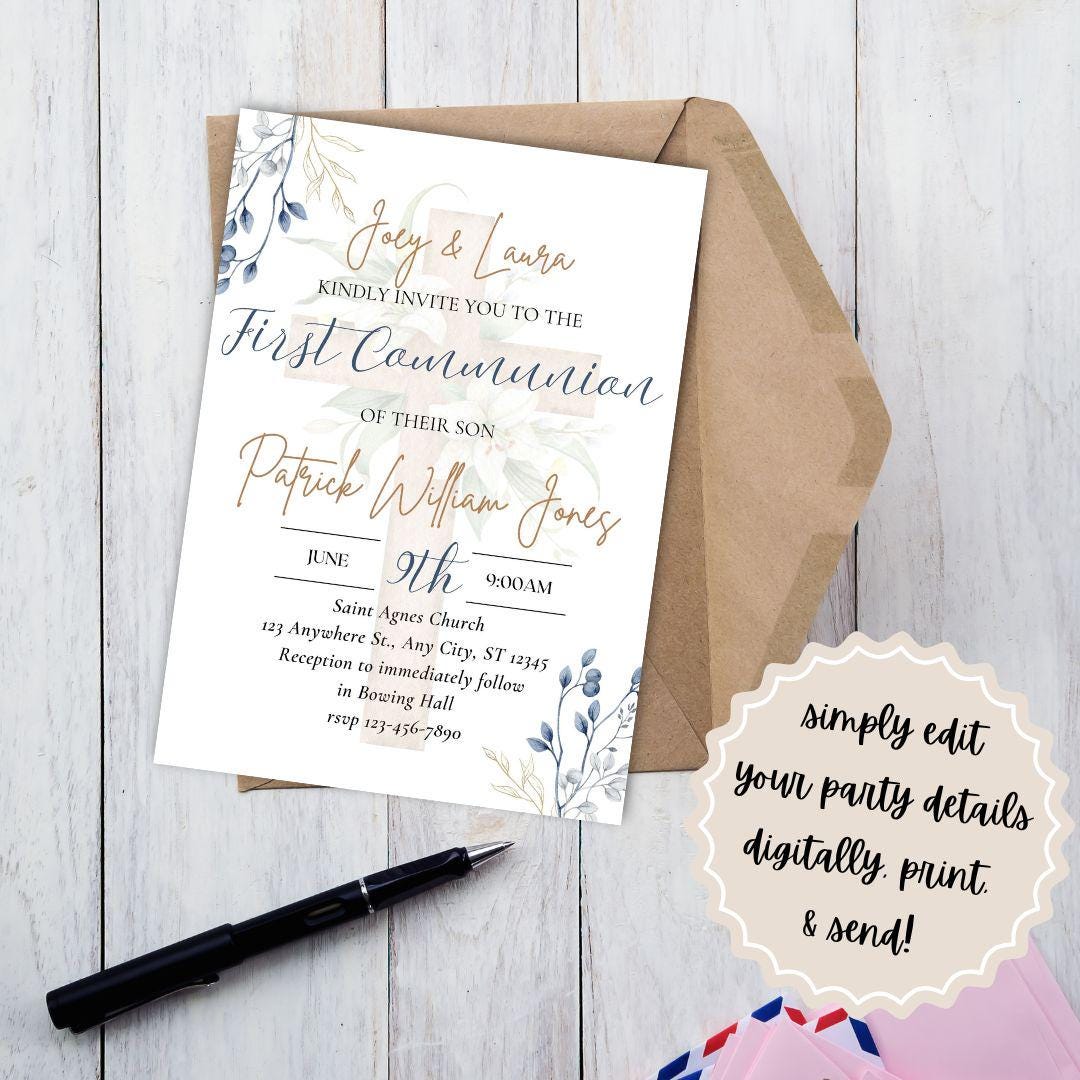 Joey & Laura
KINDLY INVITE YOU TO THE
First Communion
OF THEIR SON
Patrick William Jones
JUNE 9th 9:00AM
Saint Agnes Church
123 Anywhere St., Any City, ST 12345
Reception to immediately follow
in Bowing Hall
rsvp 123-456-7890
simply edit
your party details
digitally, print,
& send!